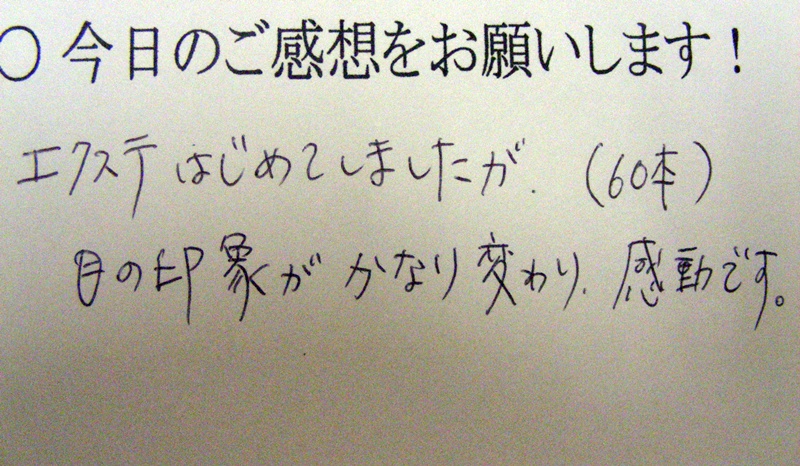 ○今日のご感想をお願いします！
エクステはじめてしましたが、(60本)
目の印象がかなり変わり、感動です。